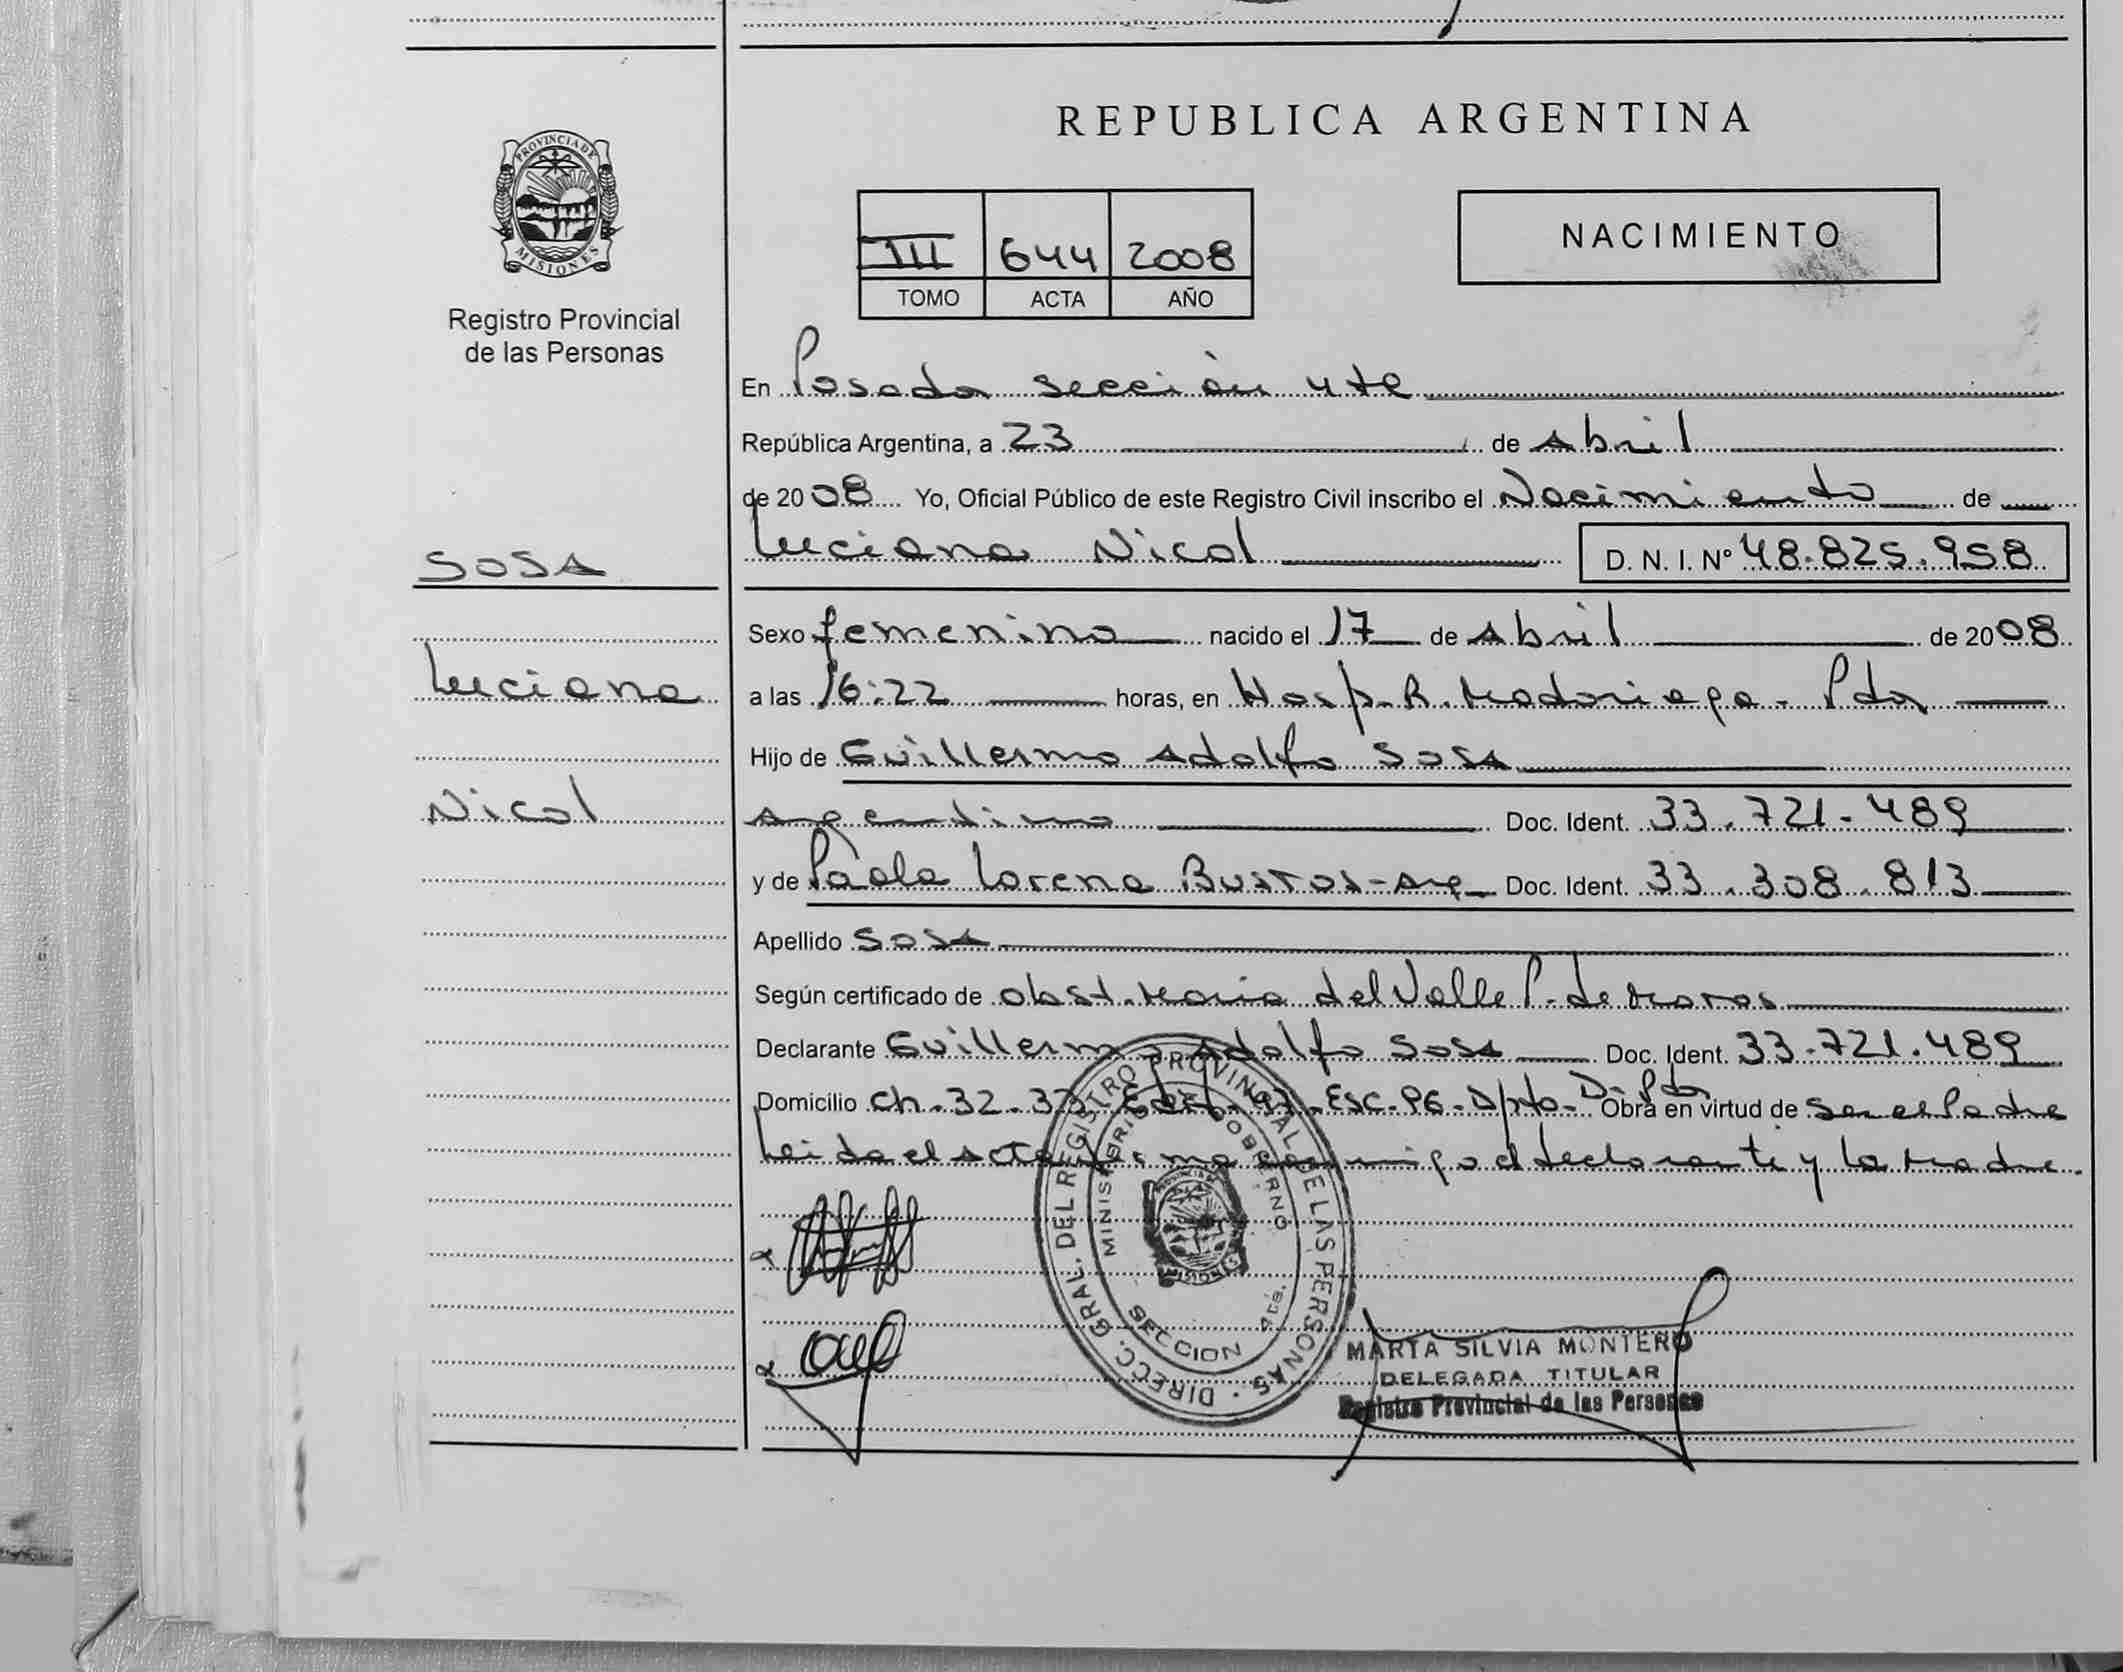 REPUBLICA ARGENTINA
PROVINCIA DE MISIONES
Registro Provincial
de las Personas
NACIMIENTO
III 644 2008
TOMO ACTA AÑO
En Posadas sección 4ta
República Argentina, a 23 de Abril
de 2008 Yo, Oficial Público de este Registro Civil inscribo el Nacimiento de
Luciana Nicol D. N. I. Nº 48.825.958
SOSA
Luciana
Nicol
Sexo femenino nacido el 17 de Abril de 2008
a las 16:22 horas, en Hosp. R. Madariaga - Pdas
Hijo de Guillermo Adolfo Sosa
Argentino Doc. Ident. 33.721.489
y de Paola Lorena Bustos - Arg Doc. Ident. 33.308.813
Apellido SOSA
Según certificado de Obst. Maria del Valle P. de
Declarante Guillermo Adolfo Sosa Doc. Ident. 33.721.489
Domicilio Ch. 32.33 Edif. Esc. 96 - Dpto - D Pdas Obra en virtud de ser el Padre
Leida el acta firma conmigo el declarante y la Madre.
DIRECC. GRAL. DEL REGISTRO PROVINCIAL DE LAS PERSONAS
MINISTERIO GOBIERNO
MISIONES
SECCION 4ta.
MARTA SILVIA MONTERO
DELEGADA TITULAR
Registro Provincial de las Personas